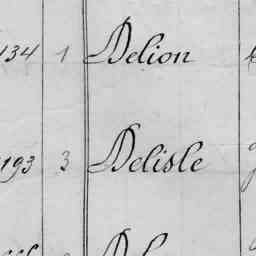 134 1 Delion
193 3 Delisle